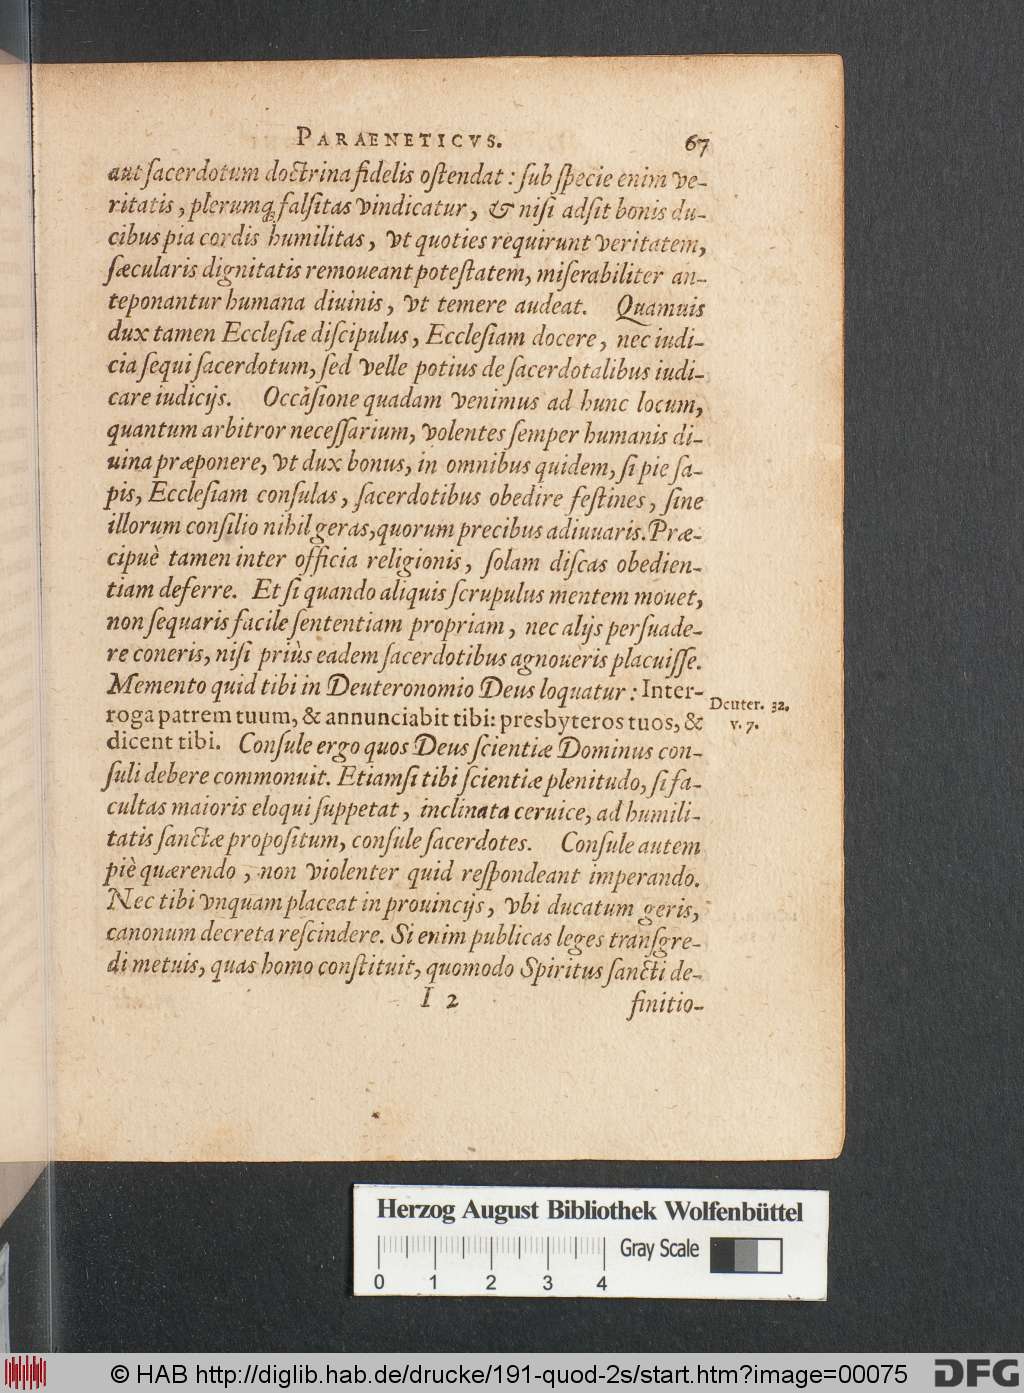 PARAENETICVS. 67
aut ſacerdotum doctrina fidelis oſtendat: ſub ſpecie enim ve-
ritatis, plerumq́ falſitas vindicatur, & niſi adſit bonis du-
cibus pia cordis humilitas, vt quoties requirunt veritatem,
ſæcularis dignitatis remoueant poteſtatem, miſerabiliter an-
teponantur humana diuinis, vt temere audeat. Quamuis
dux tamen Eccleſiæ diſcipulus, Eccleſiam docere, nec iudi-
cia ſequi ſacerdotum, ſed velle potius de ſacerdotalibus iudi-
care iudicijs. Occàſione quadam venimus ad hunc locum,
quantum arbitror neceſſarium, volentes ſemper humanis di-
uina præponere, vt dux bonus, in omnibus quidem, ſi pie ſa-
pis, Eccleſiam conſulas, ſacerdotibus obedire feſtines, ſine
illorum conſilio nihil geras, quorum precibus adiuuaris. Præ-
cipuè tamen inter officia religionis, ſolam diſcas obedien-
tiam deferre. Et ſi quando aliquis ſcrupulus mentem mouet,
non ſequaris facile ſententiam propriam, nec alijs perſuade-
re coneris, niſi priùs eadem ſacerdotibus agnoueris placuiſſe.
Memento quid tibi in Deuteronomio Deus loquatur: Inter-
roga patrem tuum, & annunciabit tibi: presbyteros tuos, &
dicent tibi. Conſule ergo quos Deus ſcientiæ Dominus con-
ſuli debere commonuit. Etiamſi tibi ſcientiæ plenitudo, ſi fa-
cultas maioris eloqui ſuppetat, inclinata ceruice, ad humili-
tatis ſanctæ propoſitum, conſule ſacerdotes. Conſule autem
piè quærendo, non violenter quid reſpondeant imperando.
Nec tibi vnquam placeat in prouincijs, vbi ducatum geris,
canonum decreta reſcindere. Si enim publicas leges tranſgre-
di metuis, quas homo conſtituit, quomodo Spiritus ſancti de-
I 2 finitio-
Deuter. 32.
v. 7.
Herzog August Bibliothek Wolfenbüttel
Gray Scale
0 1 2 3 4
© HAB http://diglib.hab.de/drucke/191-quod-2s/start.htm?image=00075
DFG